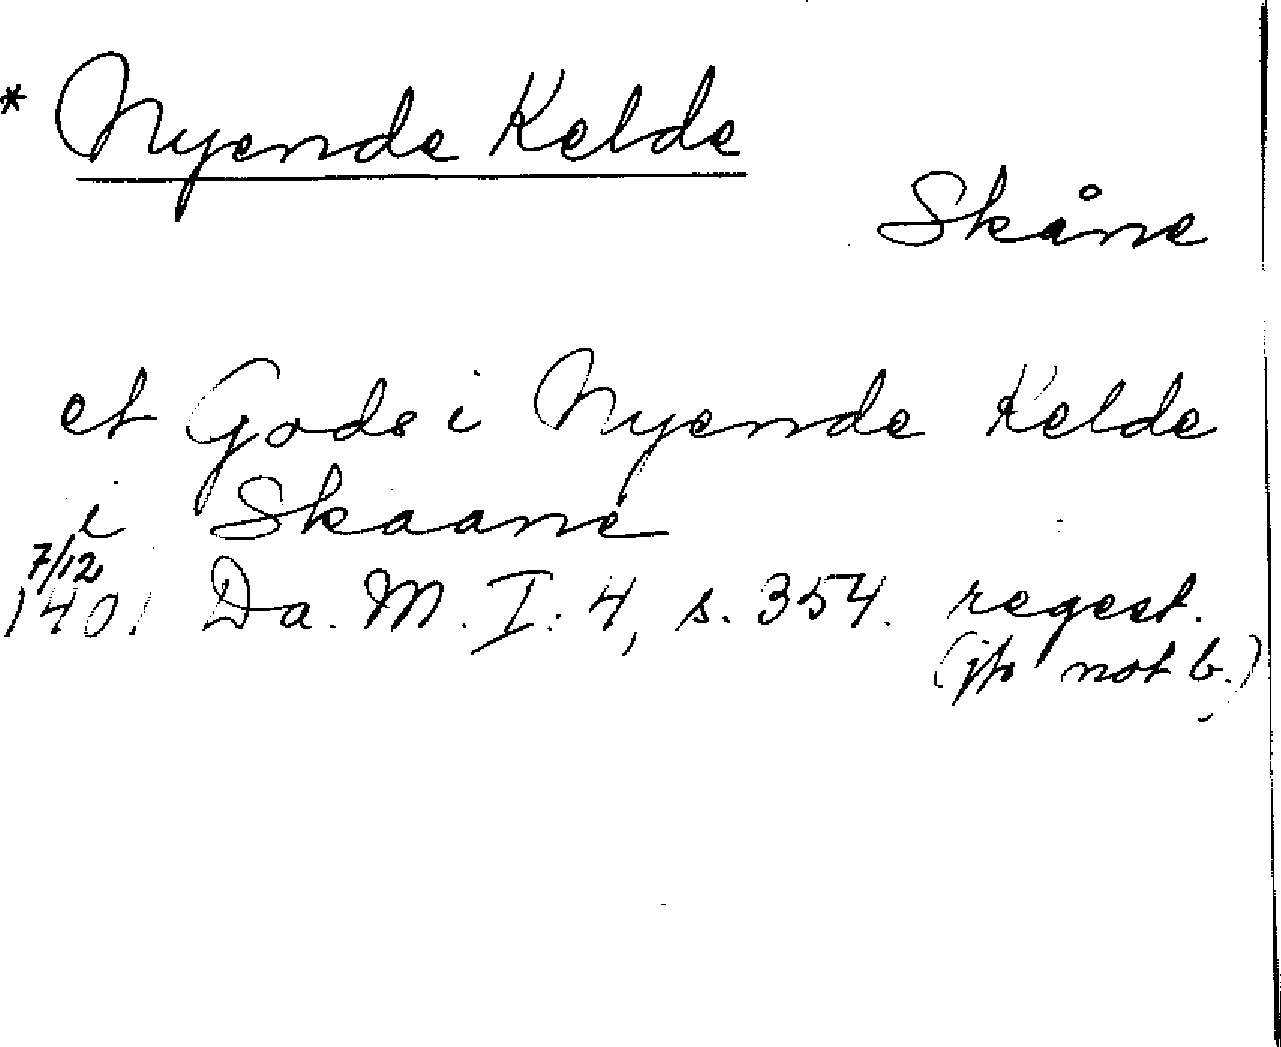 * Nyende Kelde
Skåne
et Gods i Nyende Kelde
i Skaane
7/12
1401 Da. M. I. 4, s. 354. regest.
(jfr not b.)